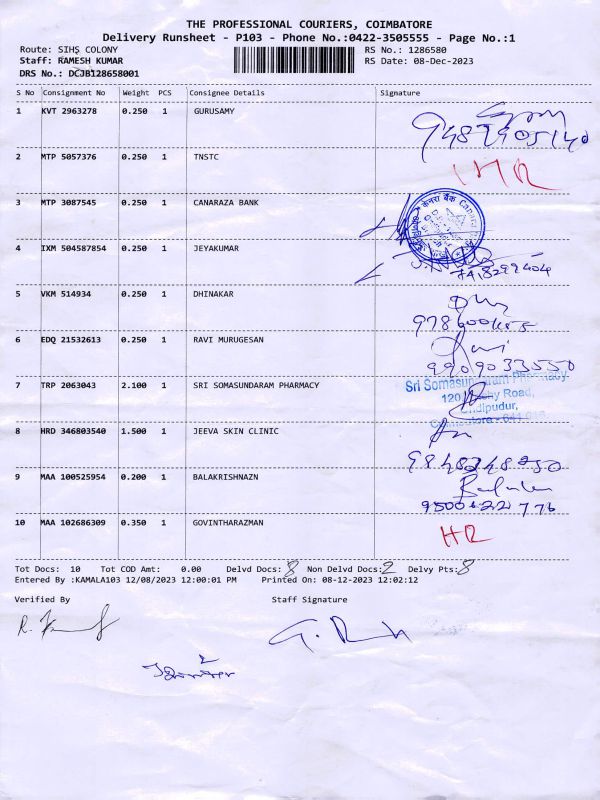 THE PROFESSIONAL COURIERS, COIMBATORE
Delivery Runsheet - P103 - Phone No.:0422-3505555 - Page No.:1
Route: SIHS COLONY
RS No.: 1286580
Staff: RAMESH KUMAR
RS Date: 08-Dec-2023
DRS No.: DCJB128658001
S No Consignment No Weight PCS Consignee Details Signature
1 KVT 2963278 0.250 1 GURUSAMY
2 MTP 5057376 0.250 1 TNSTC
3 MTP 3087545 0.250 1 CANARAZA BANK
केनरा बैंक Canara
4 IXM 504587854 0.250 1 JEYAKUMAR
5 VKM 514934 0.250 1 DHINAKAR
6 EDQ 21532613 0.250 1 RAVI MURUGESAN
Ravi
9909033550
7 TRP 2063043 2.100 1 SRI SOMASUNDARAM PHARMACY
Sri Somasundaram Pharmacy.
120 Road,
Coimbatore
8 HRD 346803540 1.500 1 JEEVA SKIN CLINIC
9848748250
9 MAA 100525954 0.200 1 BALAKRISHNAZN
10 MAA 102686309 0.350 1 GOVINTHARAZMAN
Tot Docs: 10 Tot COD Amt: 0.00 Delvd Docs: 8 Non Delvd Docs: 2 Delvy Pts: 8
Entered By :KAMALA103 12/08/2023 12:00:01 PM Printed On: 08-12-2023 12:02:12
Verified By Staff Signature